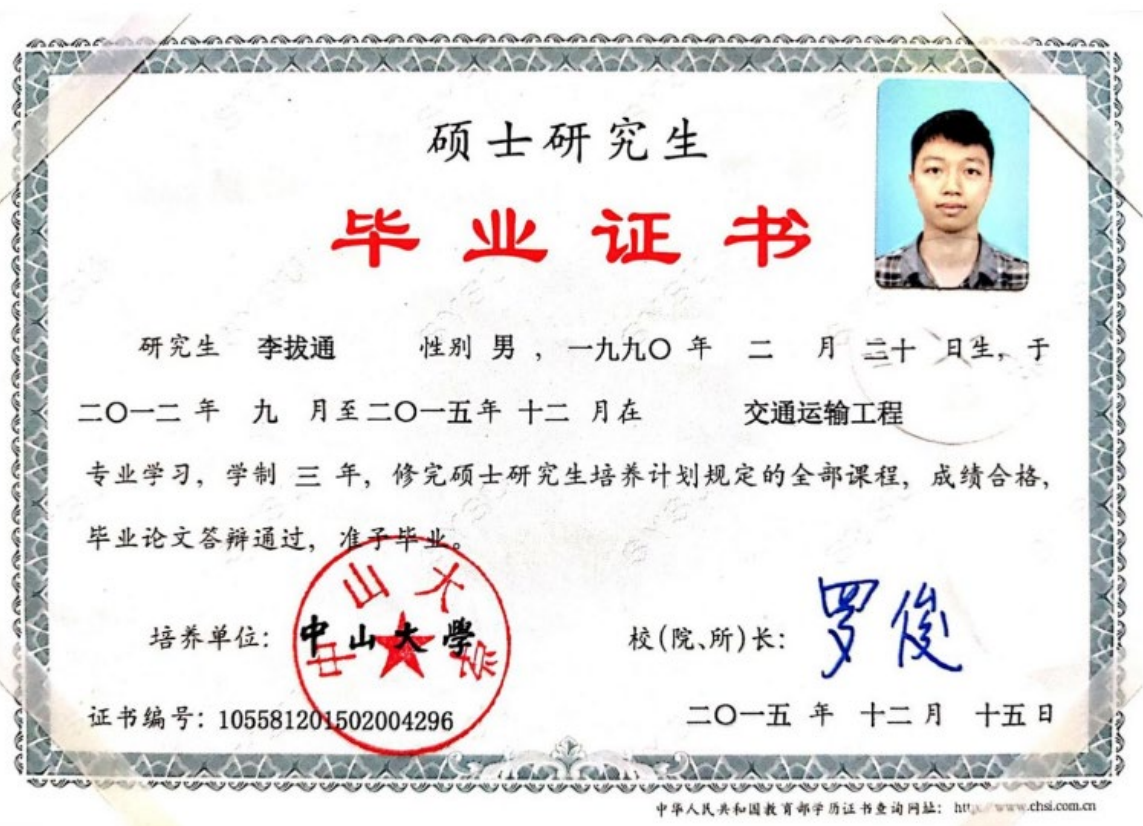 硕士研究生
毕业证书
研究生 李拔通 性别 男 ，一九九〇 年 二 月 二十 日生，于
二〇一二 年 九 月至二〇一五年 十二 月在 交通运输工程
专业学习，学制 三 年，修完硕士研究生培养计划规定的全部课程，成绩合格，
毕业论文答辩通过，准予毕业。
中山大学
培养单位：中山大學
校（院、所）长：罗俊
证书编号：105581201502004296
二〇一五 年 十二 月 十五 日
中华人民共和国教育部学历证书查询网址：http://www.chsi.com.cn